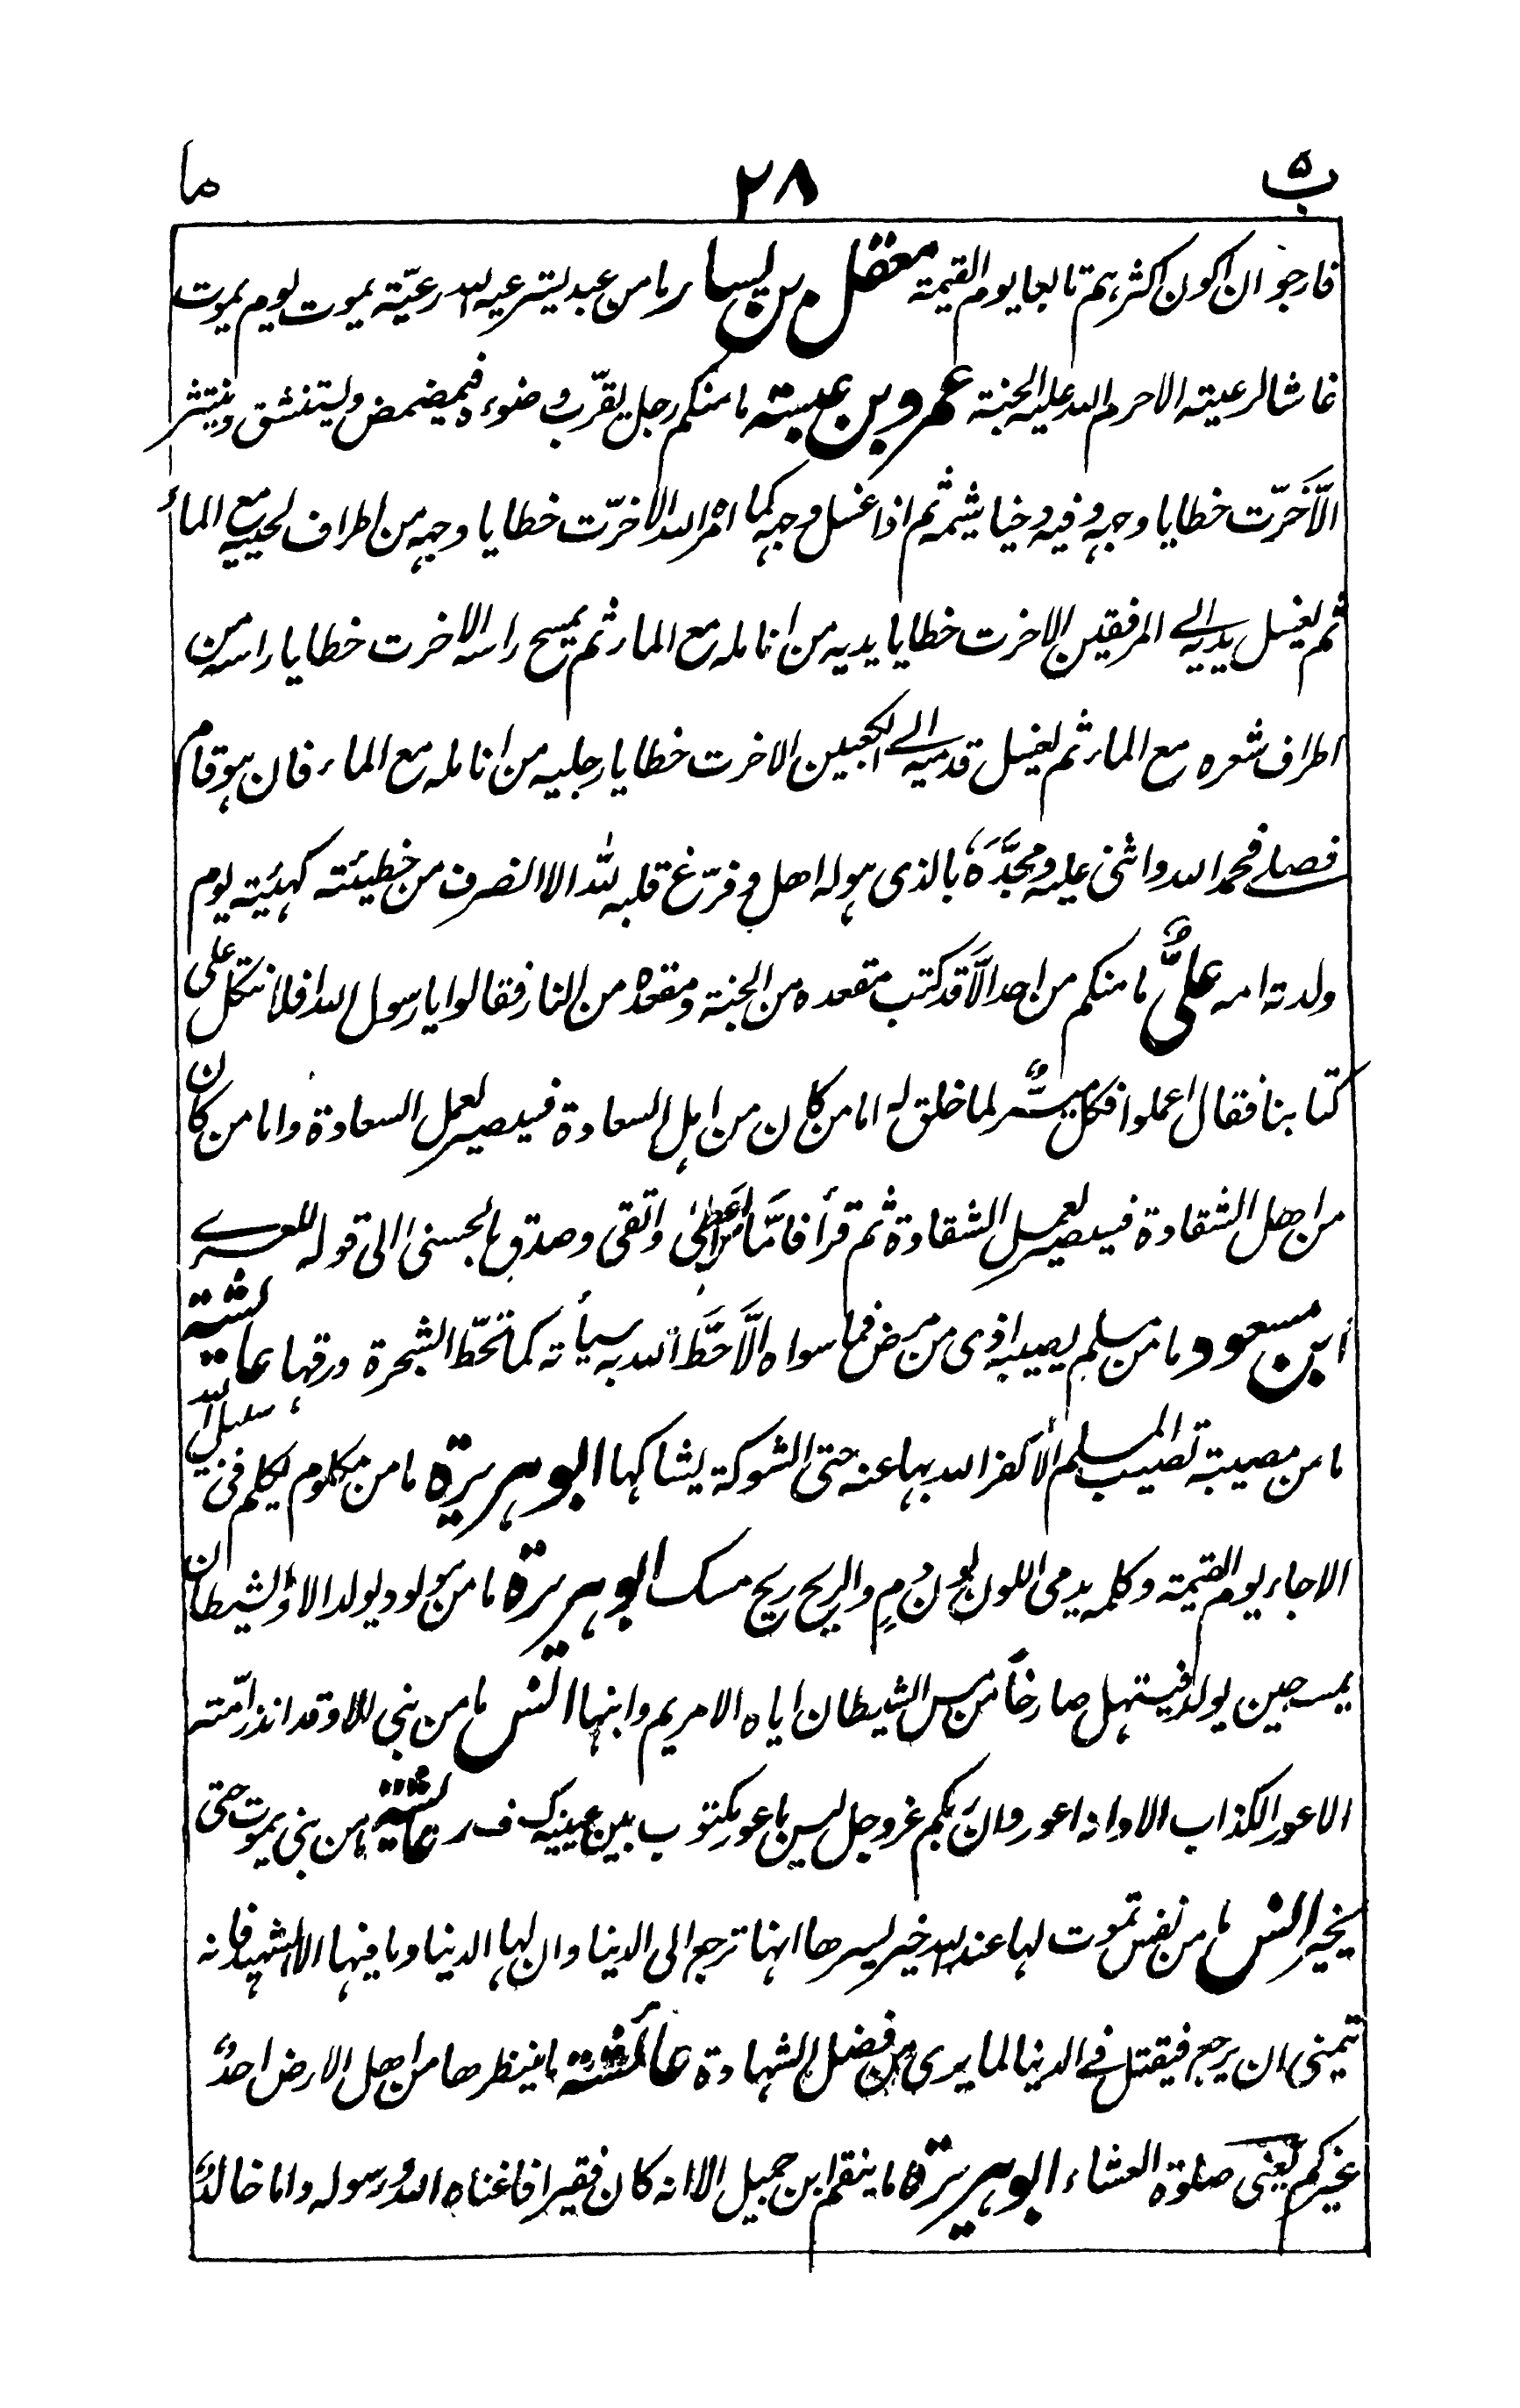 ب ٥ ٢٨ ما
فارجو ان اكون اكثرهم تابعا يوم القيمة معقل بن يسار ما من عبد يسترعيه الله رعيّة يموت يوم يموت
غاشا لرعيته الا حرم الله عليه الجنة عمرو بن عبسة ما منكم رجل يقرّب وضوءه فيمضمض ويستنشق وينتثر
الّا خَرّت خطايا وجهه وفيه وخياشيمه ثم اذا غسل وجهه كما امره الله الا خرّت خطايا وجهه من اطراف لحيته مع الماء
ثم يغسل يديه الى المرفقين الا خرت خطايا يديه من انامله مع الماء ثم يمسح راسه الا خرت خطايا راسه من
اطراف شعره مع الماء ثم يغسل قدميه الى الكعبين الا خرت خطايا رجليه من انامله مع الماء فان هو قام
فصلى فحمد الله واثنى عليه ومجّدَه بالذى هو له اهل وفرّغ قلبه لله الا انصرف من خطيئته كهيئته يوم
ولدته امه علىٌّ ما منكم من احد الّا قد كتب مقعده من الجنة ومقعده من النار فقالوا يا رسول الله افلا نتكل على
كتابنا فقال اعملوا فكل ميسّرٌ لما خلق له اما من كان من اهل السعادة فسيصير لعمل السعادة واما من كان
من اهل الشقاوة فسيصير لعمل الشقاوة ثم قرأ فامّا من اَعطى واتقى وصدق بالحسنى الى قوله للعسرى
ابن مسعود ما من مسلم يصيبه اذى من مرض فما سواه الّا حَطَّ الله به سيأته كما تحطّ الشجرة ورقها عائشة
ما من مصيبة تصيب المسلم الا كفر الله بها عنه حتى الشوكة يشاكها ابو هريرة ما من مكلوم يكلم فى سبيل الله
الا جاء يوم القيمة وكلمه يدمى اللون لون دمٍ والريح ريح مسك ابو هريرة ما من مولود يولد الا والشيطان
يمسه حين يولد فيستهل صارخاً من مس الشيطان اياه الا مريم وابنها انس ما من نبى الا وقد انذر امّته
الاعور الكذاب الا وانه اعور وان ربكم عز وجل ليس باعور مكتوب بين عينيه ك ف ر عائشة ما من نبى يموت حتى
يخير انس ما من نفس تموت لها عند الله خير يسرها انها ترجع الى الدنيا وان لها الدنيا وما فيها الا الشهيد فانه
يتمنى ان يرجع فيقتل فى الدنيا لما يرى من فضل الشهادة عائشة ما ينتظرها من اهل الارض احدٌ
غيركم يعنى صلوة العشاء ابو هريرة ما ينقم ابن جميل الا انه كان فقيرا فاغناه الله ورسوله واما خالدٌ